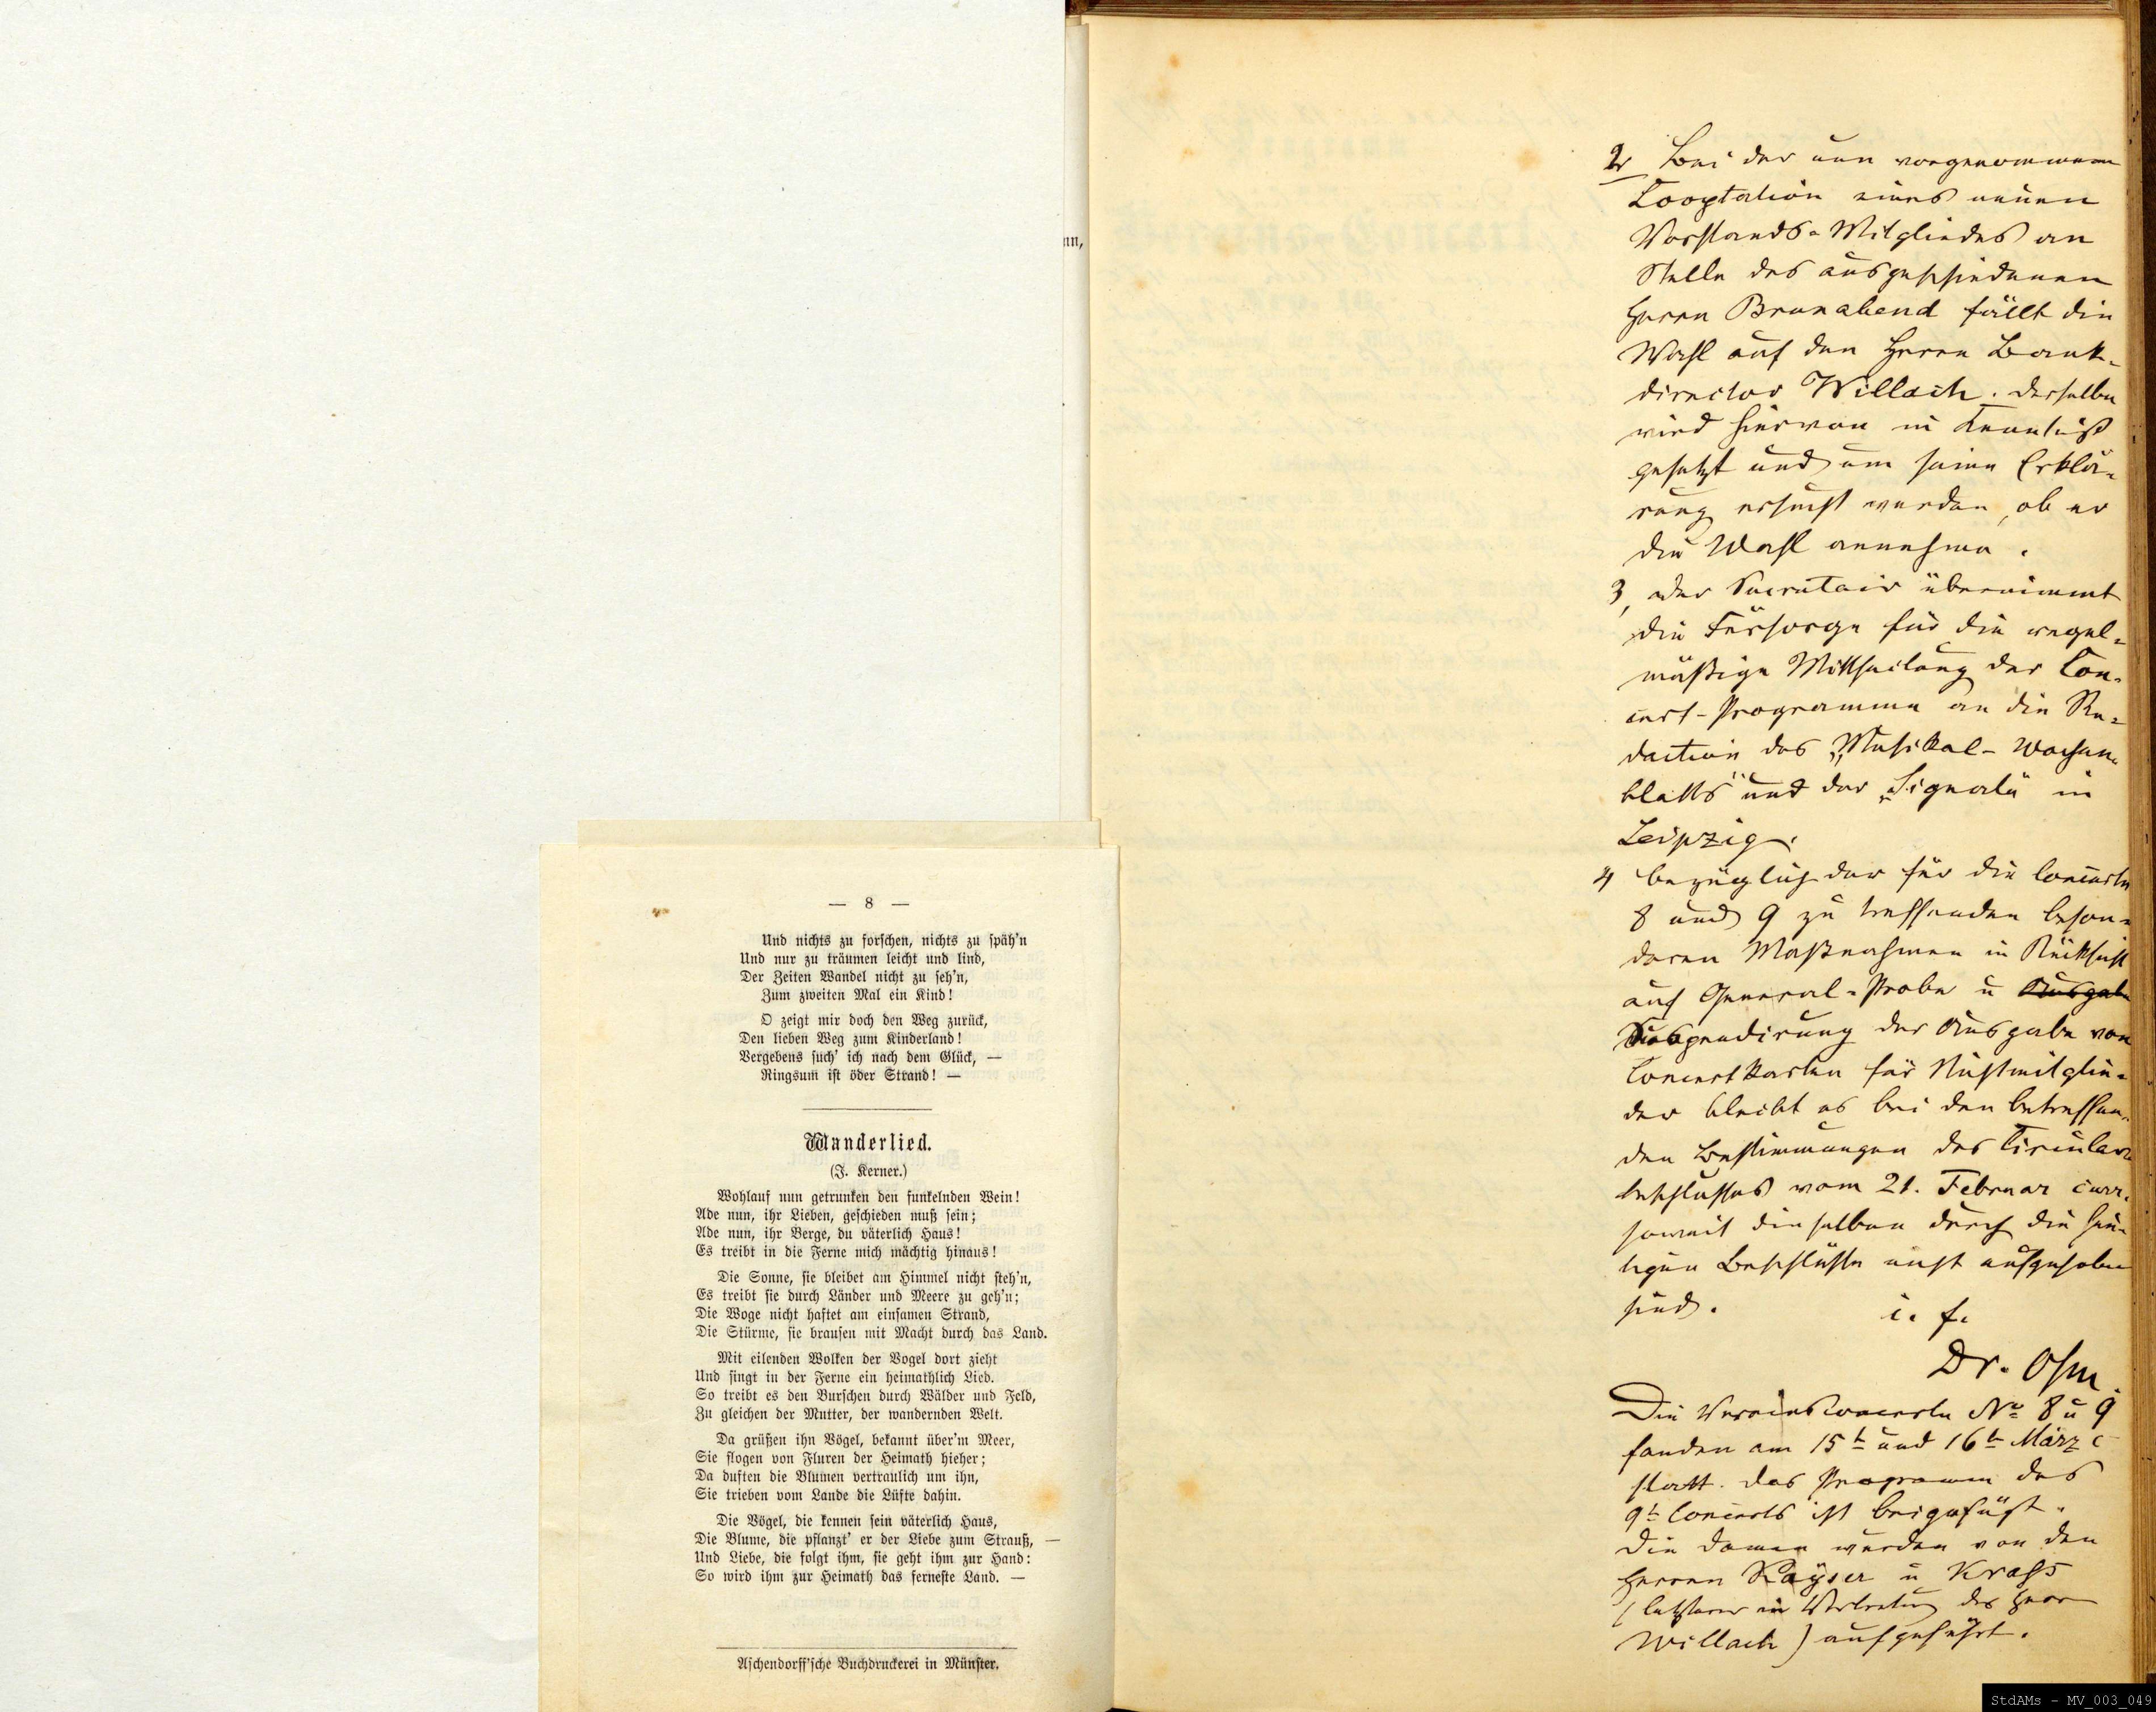 nn,
— 8 —
Und nichts zu forschen, nichts zu späh'n
Und nur zu träumen leicht und lind,
Der Zeiten Wandel nicht zu seh'n,
Zum zweiten Mal ein Kind!
O zeigt mir doch den Weg zurück,
Den lieben Weg zum Kinderland!
Vergebens such' ich nach dem Glück, —
Ringsum ist öder Strand! —
Wanderlied.
(J. Kerner.)
Wohlauf nun getrunken den funkelnden Wein!
Ade nun, ihr Lieben, geschieden muß sein;
Ade nun, ihr Berge, du väterlich Haus!
Es treibt in die Ferne mich mächtig hinaus!
Die Sonne, sie bleibet am Himmel nicht steh'n,
Es treibt sie durch Länder und Meere zu geh'n;
Die Woge nicht haftet am einsamen Strand,
Die Stürme, sie brausen mit Macht durch das Land.
Mit eilenden Wolken der Vogel dort zieht
Und singt in der Ferne ein heimathlich Lied.
So treibt es den Burschen durch Wälder und Feld,
Zu gleichen der Mutter, der wandernden Welt.
Da grüßen ihn Vögel, bekannt über'm Meer,
Sie flogen von Fluren der Heimath hieher;
Da duften die Blumen vertraulich um ihn,
Sie trieben vom Lande die Lüfte dahin.
Die Vögel, die kennen sein väterlich Haus,
Die Blume, die pflanzt' er der Liebe zum Strauß, —
Und Liebe, die folgt ihm, sie geht ihm zur Hand:
So wird ihm zur Heimath das fernste Land. —
Aschendorff'sche Buchdruckerei in Münster.
2, Bei der nun vorgenommenen
Cooptation eines neuen
Vorstands-Mitgliedes an
Stelle des ausgeschiedenen
Herrn Brunabend fällt die
Wahl auf den Herrn Bank-
director Willach. Derselbe
wird hiervon in Kenntniß
gesetzt und um seine Erklä-
rung ersucht werden, ob er
die Wahl annehme.
3, der Secretair übernimmt
die Fürsorge für die regel-
mäßige Mittheilung der Con-
cert-Programme an die Re-
daction des „Musikal-Wochen-
blatts" und der „Signale" in
Leipzig.
4, bezüglich der für die Concerte
8 und 9 zu treffenden beson-
deren Maßnahmen in Rücksicht
auf General-Probe u Ausgabe
Suspendirung der Ausgabe von
Concertkarten für Nichtmitglie-
der bleibt es bei den betreffen-
den Bestimmungen des Circular-
beschlusses vom 21. Februar curr.
soweit dieselben durch die heu-
tigen Beschlüsse nicht aufgehoben
sind.
i. f.
Dr. Ohm.
Die Vereinsconcerte No 8 u 9
fanden am 15t und 16t März c
statt. Das Programm des
9t Concerts ist beigefügt.
Die Damen wurden von den
Herren Kayser u Krass
(letzterer in Vertretung des Herrn
Willach) aufgeführt.
StdAMs - MV_003_049